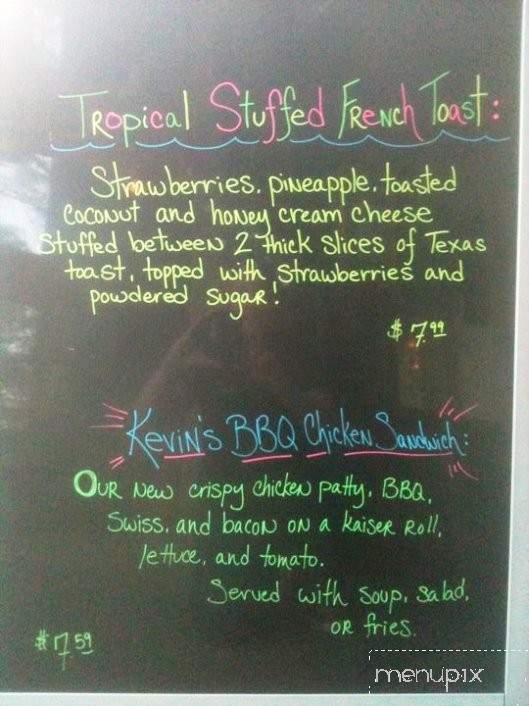 Tropical Stuffed French Toast:
Strawberries, pineapple, toasted
coconut and honey cream cheese
stuffed between 2 thick slices of Texas
toast, topped with strawberries and
powdered sugar!
$7.99
Kevin's BBQ Chicken Sandwich:
Our new crispy chicken patty, BBQ,
Swiss, and bacon on a kaiser roll,
lettuce, and tomato.
Served with soup, salad,
or fries.
$7.59
menupix